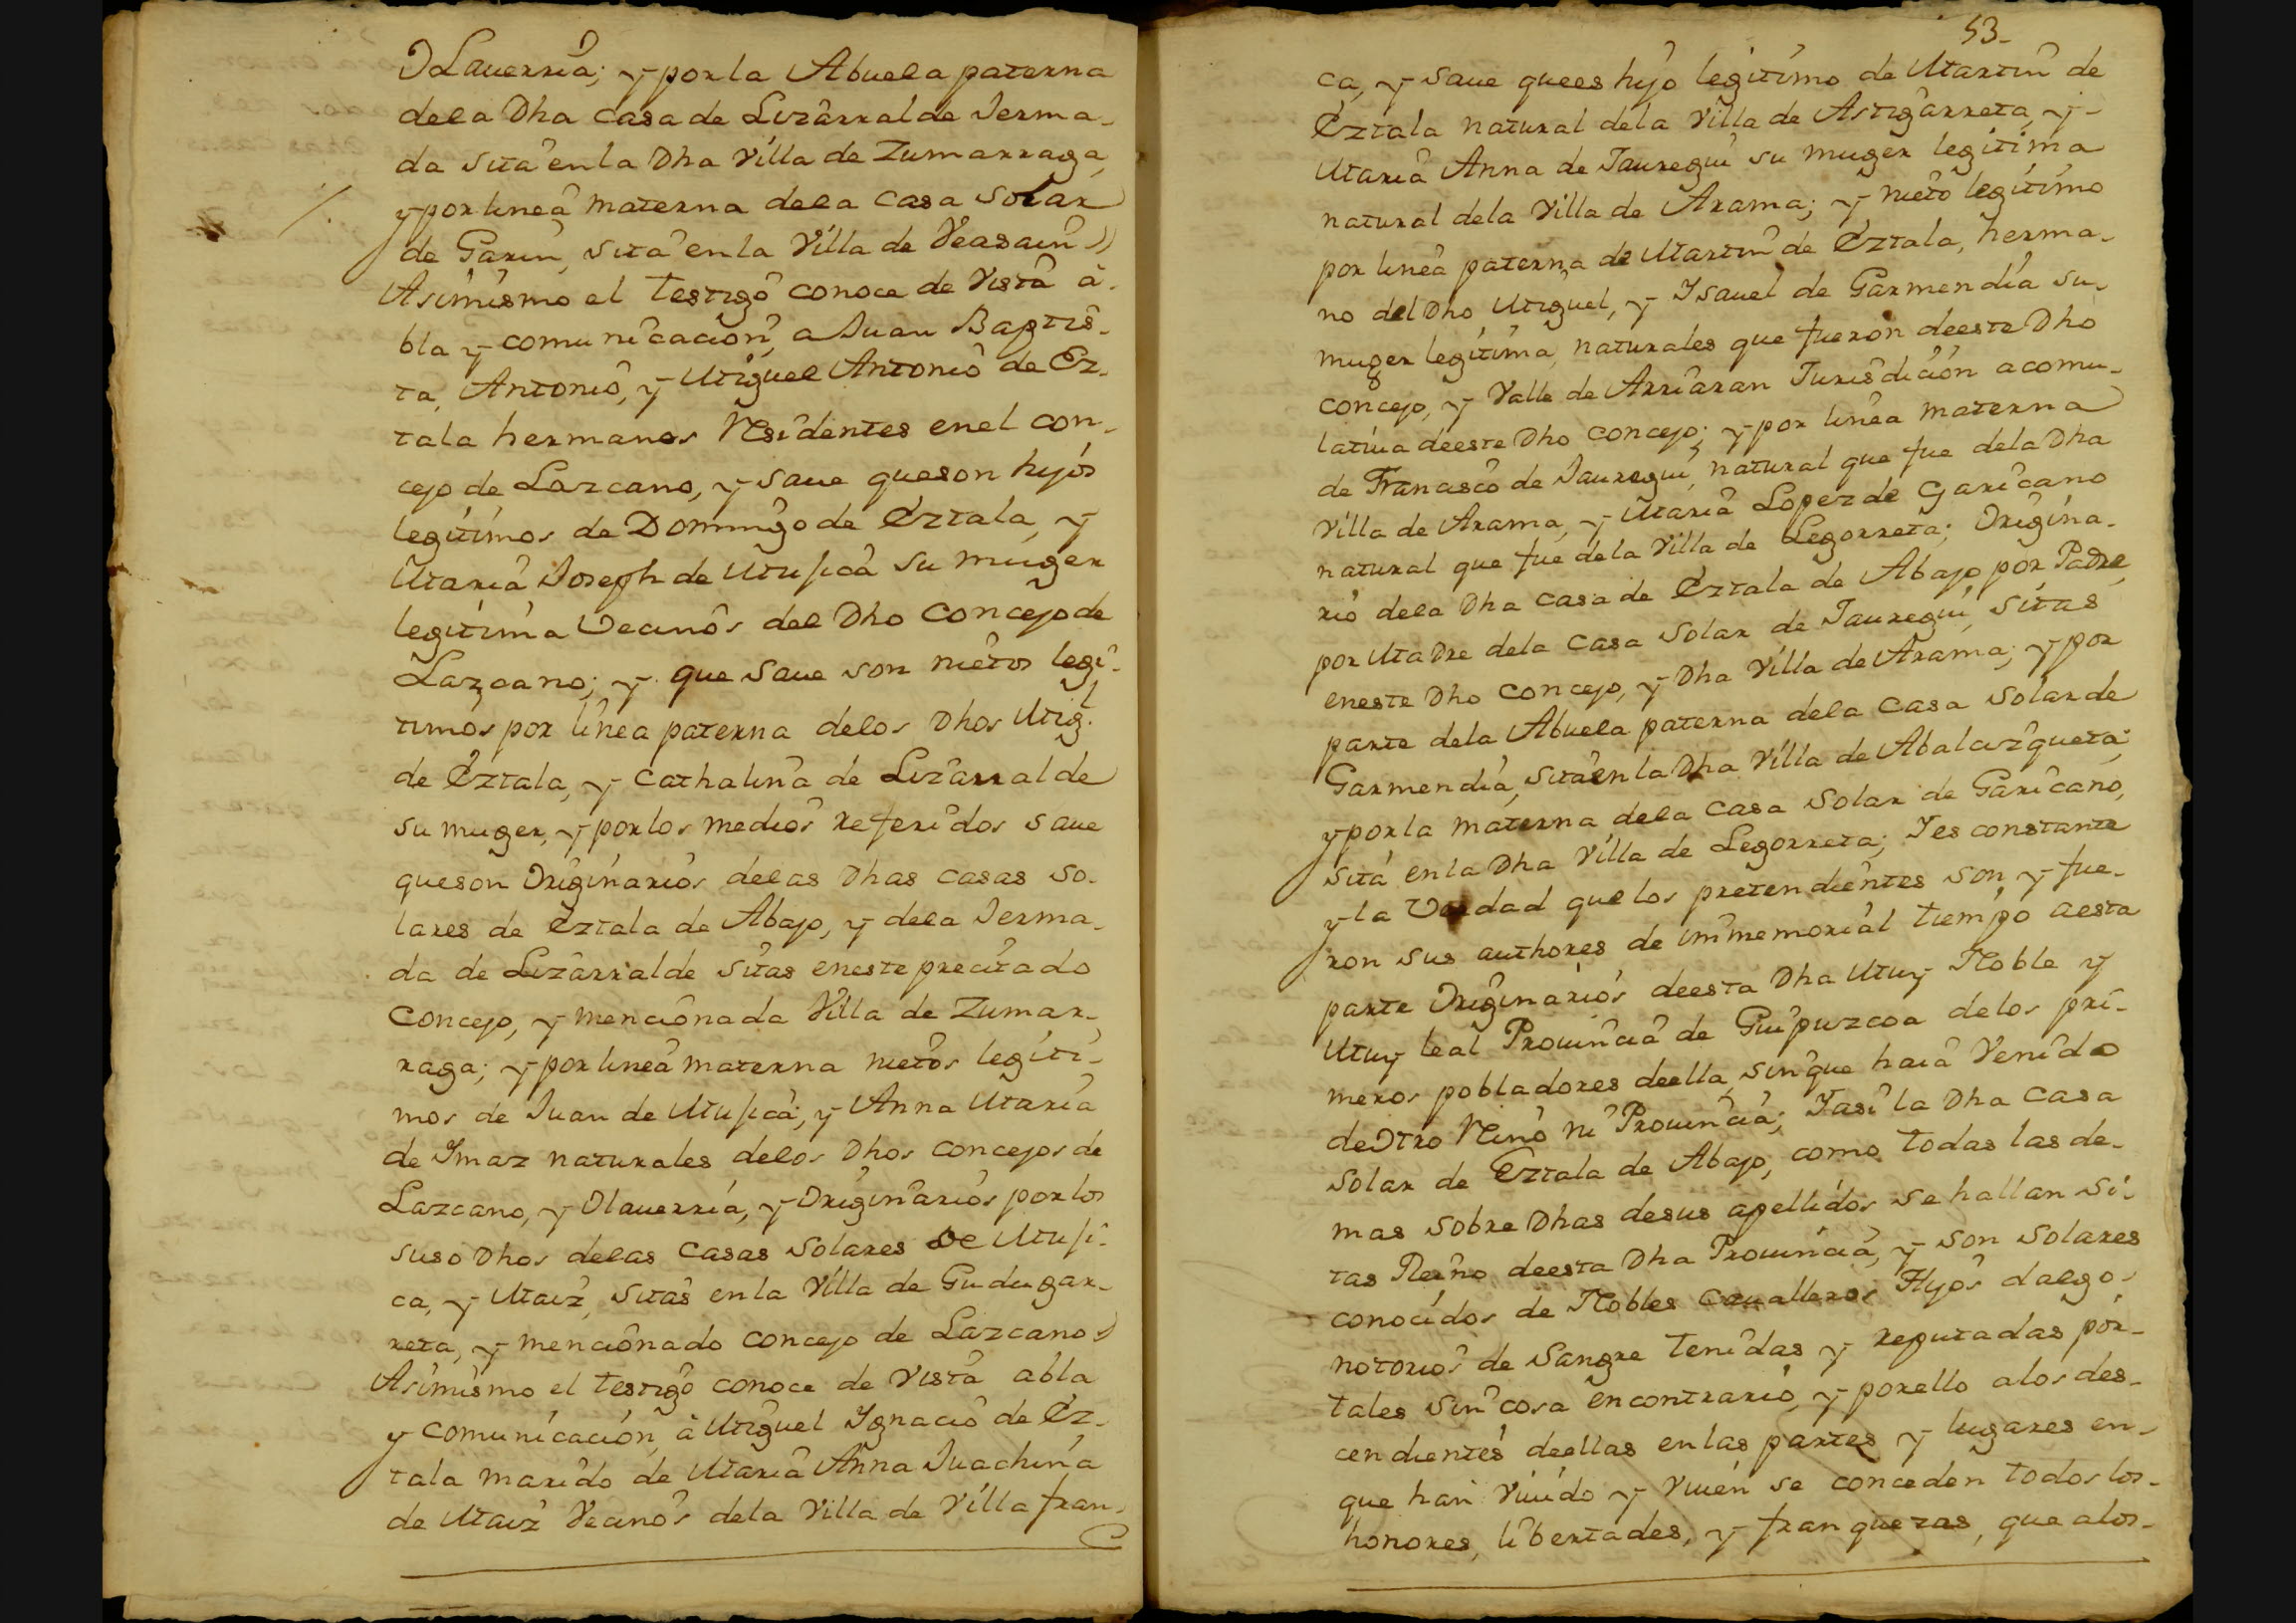 OLauerria; y por la Abuela paterna
dela Dha Casa de Lizarralde Jerma-
da sita en la Dha Villa de Zumarraga,
y por linea materna dela Casa Solar
de Garin, sita en la Villa de Veasain))
Asimismo el testigo conoce de vista a-
bla y comunicacion, a Juan Baptis-
ta, Antonio, y Miguel Antonio de Ez-
tala hermanos Residentes enel con-
cejo de Lazcano, y saue queson hijos
legitimos de Domingo de Eztala, y
Maria Joseph de Mujica su muger
legitima Vecinos del Dho Concejo de
Lazcano; y que saue son nietos legi-
timos por linea paterna delos Dhos Migl.
de Eztala, y Cathalina de Lizarralde
su muger, y por los medios referidos saue
queson Originarios delas Dhas casas so-
lares de Eztala de Abajo, y dela Jerma-
da de Lizarralde sitas eneste precitado
Concejo, y mencionada Villa de Zumar-
raga; y por linea materna nietos legiti-
mos de Juan de Mujica, y Anna Maria
de Ymaz naturales delos Dhos concejos de
Lazcano, y Olauerria, y Originarios por los
suso Dhos delas Casas Solares de Muji-
ca, y Maiz, sitas en la Villa de Gudugar-
reta, y mencionado concejo de Lazcano))
Asimismo el testigo conoce de vista abla
y comunicacion, à Miguel Ygnacio de Ez-
tala marido de Maria Anna Juachina
de Maiz Vecinos dela Villa de Villa fran-
53-
ca, y saue quees hijo legitimo de Martin de
Eztala natural dela Villa de Astigarreta, y-
Maria Anna de Jauregui su muger legitima
natural dela Villa de Arama; y nieto legitimo
por linea paterna de Martin de Eztala, herma-
no del Dho Miguel, y Ysauel de Garmendia su-
muger legitima, naturales que fueron deeste Dho
concejo, y Valle de Arriaran Jurisdicion acomu-
latiua deeste Dho concejo; y por linea materna
de Francisco de Jauregui, natural que fue dela Dha
Villa de Arama, y Maria Lopez de Garicano
natural que fue dela Villa de Legorreta; Origina-
rio dela Dha casa de Eztala de Abajo por Padre,
por Madre dela Casa Solar de Jauregui, sitas
eneste Dho concejo, y Dha Villa de Arama; y por
parte dela Abuela paterna dela Casa Solar de
Garmendia, sita en la Dha Villa de Abalcizqueta;
y por la materna dela Casa Solar de Garicano,
sita en la Dha Villa de Legorreta; Yes constante
y la Verdad que los pretendientes son, y fue-
ron sus authores de immemorial tiempo aesta
parte Originarios deesta Dha Muy Noble y
Muy leal Prouincia de Guipuzcoa delos pri-
meros pobladores deella, sin que haia Venido
de Otro Reino ni Prouincia; Yasi la Dha Casa
solar de Eztala de Abajo, como todas las de-
mas sobre Dhas desus apellidos se hallan si-
tas Reino deesta Dha Prouincia, y son solares
conocidos de Nobles Caualleros Hijos dalgo,
notorios de Sangre tenidas y reputadas por-
tales sin cosa encontrario, y porello alos des-
cendientes deellas enlas partes y lugares en-
que han viuido y viuen se conceden todos los-
honores, libertades, y franquezas, que alos-